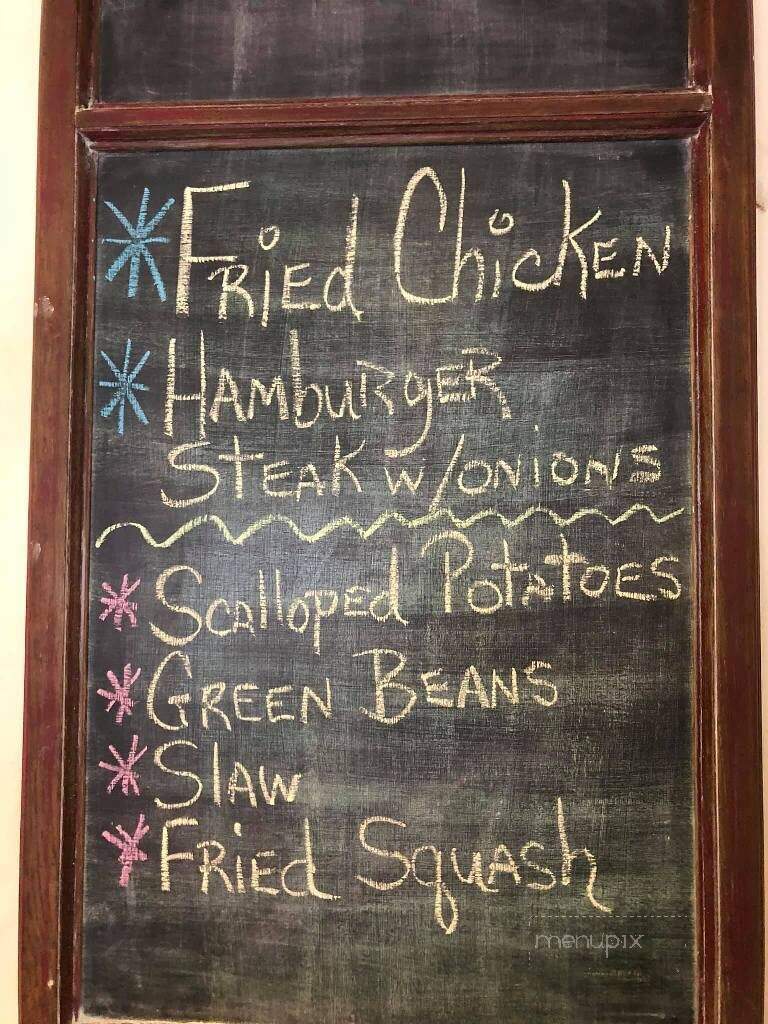 * Fried Chicken
* Hamburger
Steak w/onions
* Scalloped Potatoes
* Green Beans
* Slaw
* Fried Squash
menupix